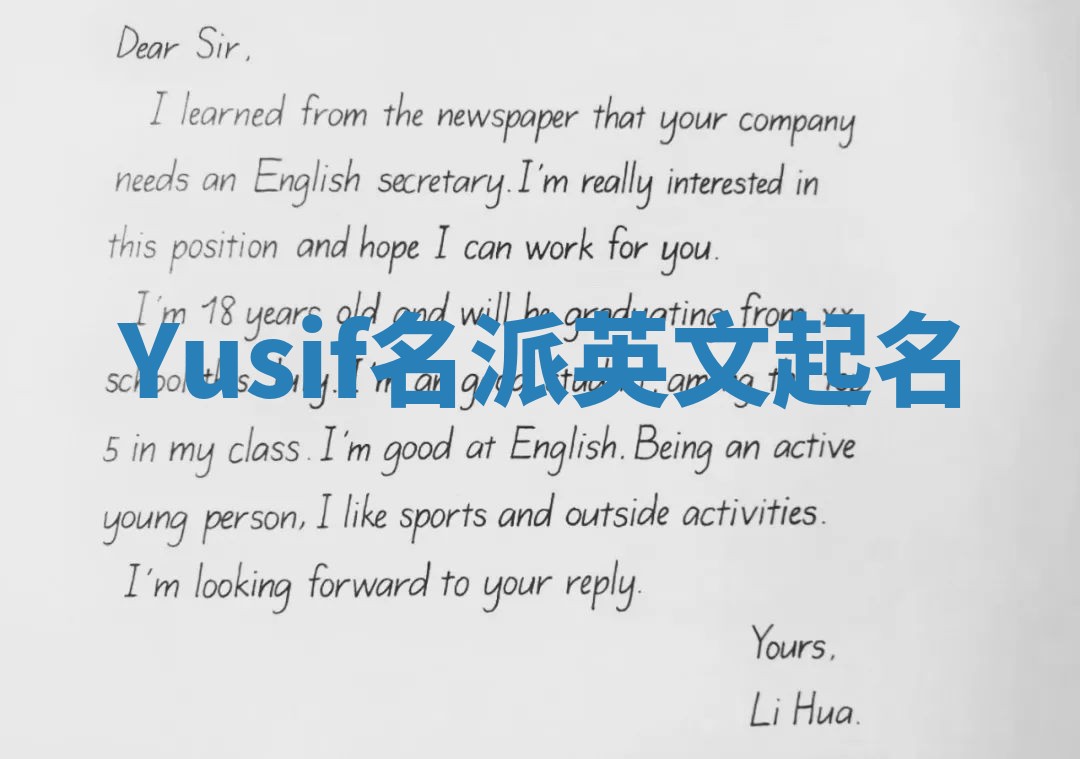 Dear Sir,
I learned from the newspaper that your company
needs an English secretary. I'm really interested in
this position and hope I can work for you.
I'm 18 years old and will be graduating from xx
Yusif名派英文起名
school this July. I'm an good student, among the top
5 in my class. I'm good at English. Being an active
young person, I like sports and outside activities.
I'm looking forward to your reply.
Yours,
Li Hua.